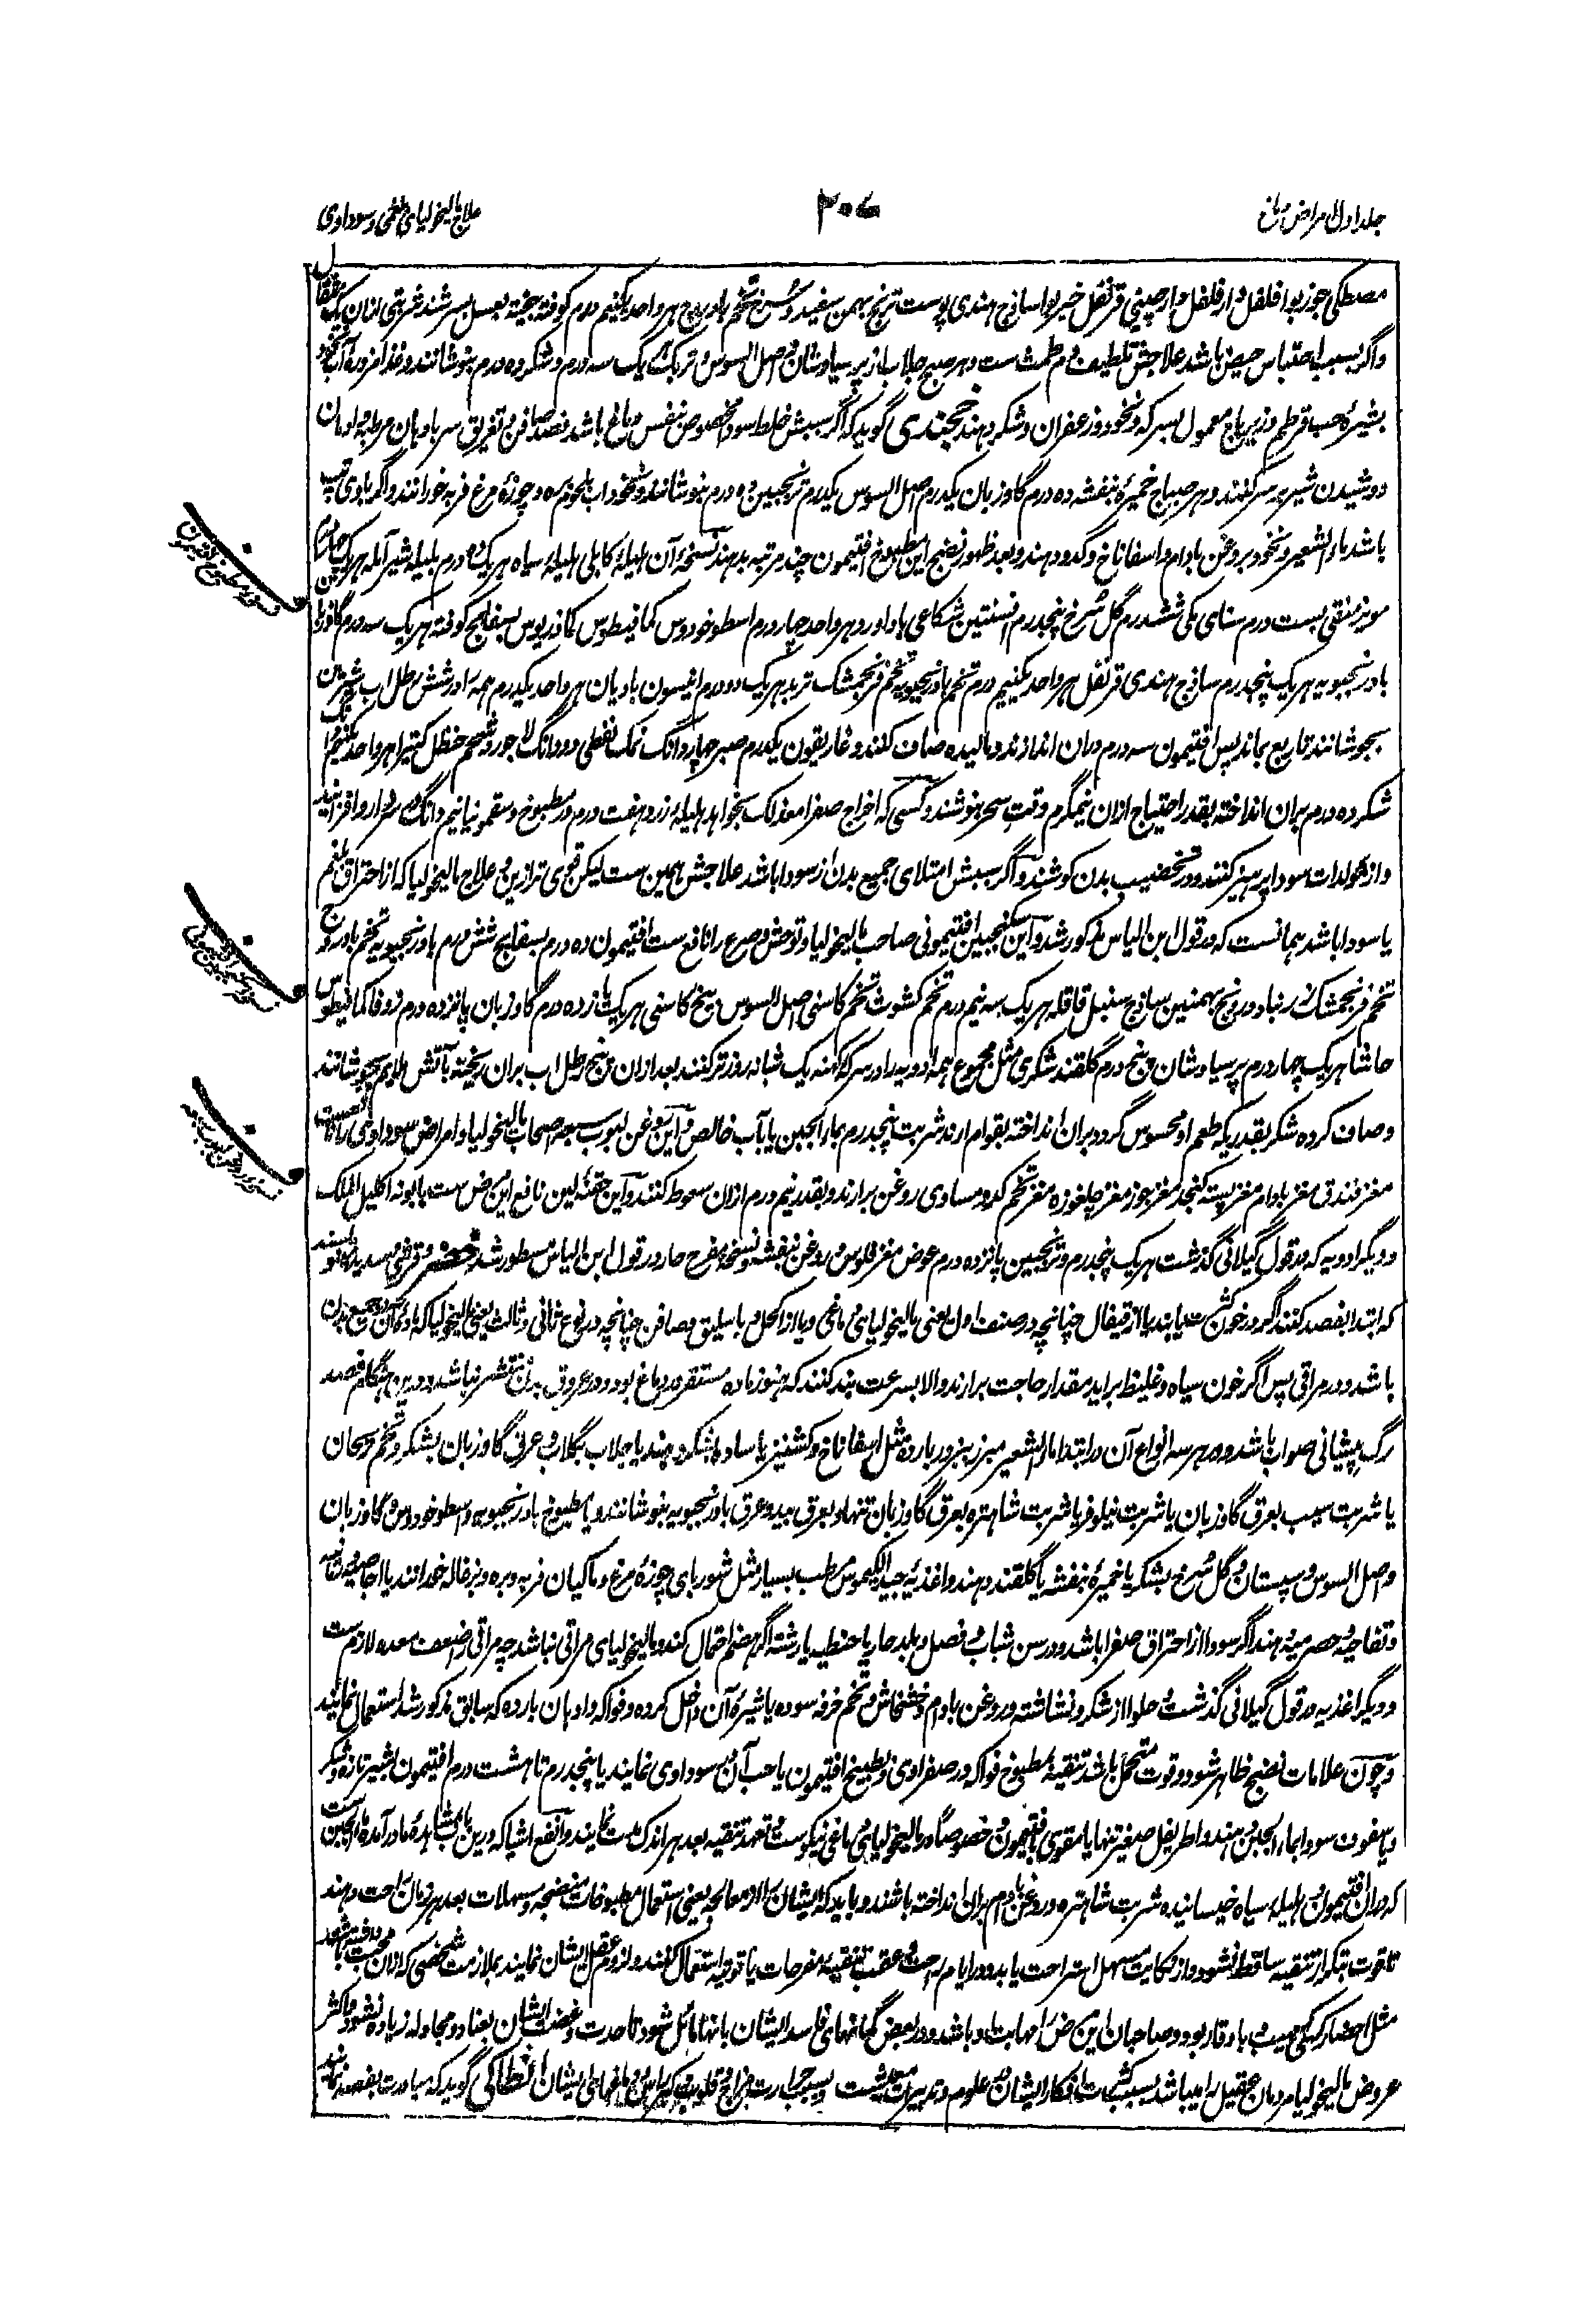 جلد اول امراض دماغ
۳۰۷
علاج مالیخولیای بلغمی و سوداوی
مصطکی جوزبوا فلفل دارفلفل دارچینی قرنفل خیربوا ساذج هندی پوست ترنج بهمن سفید و سرخ تخم بادروج هر واحد یکنیم درم کوفته بیخته بعسل بسرشند شربتی ازان یک مثقال
و اگر بسبب احتباس حیض باشد علاجش تلطیف دم طمث ست و هر صبح جلاب از پرسیاوشان و اصل السوس هر یک سه درم و شکر ده درم بنوشانند و غذا مزوره آب نخود
بشیره حب قرطم و زیرباج معمول بسرکه و نخود و زعفران و شکر دهند خجندی گوید که اگر سببش خلط سودا مخصوص بنفس دماغ باشد فصد صافن و تفریق سر بادهان مرطبه و ادمان
دوشیدن شیر بر سر کنند و هر صباح خمیره بنفشه ده درم گاوزبان یکدرم اصل السوس یکدرم ترنجبین ده درم بنوشانند و نخوداب بلحوم بره و چوزه مرغ فربه خورانند و اگر با وی تپ
باشد ماء الشعیر و نخود بروغن بادام و اسفاناخ و کدو دهند و بعد ظهور نضج این مطبوخ افتیمون چند مرتبه بدهند نسخه آن هلیله کابلی هلیله سیاه هر یک ده درم بلیله شیرآمله هر یک
مویز منقی بست درم سنای مکی ششدرم گل سرخ پنجدرم افسنتین شکاعی باداورد هر واحد چهار درم اسطوخودوس کمافیطوس کماذریوس بسفایج کوفته هر یک سه درم گاوزبان
بادرنجبویه هر یک پنجدرم ساذج هندی قرنفل هر واحد یکنیم درم تخم بادرنجبویه تخم فرنجمشک تربد هر یک دو درم انیسون بادیان هر واحد یکدرم همه را در شش رطل آب شیرین
بجوشانند تا ربع بماند پس افتیمون سه درم دران اندازند و مالیده صاف کنند و غاریقون یکدرم صبر چهار دانگ نمک نفطی دو دانگ لاجورد شحم حنظل کتیرا هر واحد
شکر ده درم بران انداخته بقدر احتیاج ازان نیمگرم وقت سحر بنوشند و کسی که اخراج صفرا مع ذلک بخواهد هلیله زرد هفت درم در مطبوخ و سقمونیا نیم دانگ در افزایند
و از مولدات سودا پرهیز کنند و در تخصیب بدن کوشند و اگر سببش امتلای جمیع بدن از سودا باشد علاجش همین ست لیکن قوی تر ازین و علاج مالیخولیا که از احتراق بلغم
یا سودا باشد همانست که در قول ابن الیاس مذکور شد و این سکنجبین افتیمونی صاحب مالیخولیا و توحش و صرع را نافع ست افتیمون ده درم بسفایج شش درم بادرنجبویه تخم بادروج
تخم فرنجمشک زرنباد درونج بهمنین ساذج سنبل قاقله هر یک سه نیم درم تخم کشوث تخم کاسنی اصل السوس بیخ کاسنی هر یک پانزده درم گاوزبان پانزده درم زوفا کمافیطوس
حاشا هر یک چهار درم پرسیاوشان پنج درم گلقند شکری مثل مجموع همه ادویه را در سرکه کهنه یک شبانه روز تر کنند بعد ازان پنج رطل آب بران ریخته بآتش ملایم بجوشانند
و صاف کرده شکر بقدریکه طعم او محسوس گردد بران انداخته بقوام آرند شربت پنجدرم بماء الجبن یا بآب خالص و این روغن لبوب سبعه اصحاب مالیخولیا و امراض سوداوی را نافع ست
مغز فندق مغز بادام مغز پسته کنجد مغز جوز مغز چلغوزه مغز تخم کدو مساوی روغن برآرند و بقدر نیم درم ازان سعوط کنند و این حقنه لین نافع این مرض ست بابونه اکلیل الملک
و دیگر ادویه که در قول گیلانی گذشت هر یک پنجدرم و ترنجبین پانزده درم عوض مغز فلوس و روغن بنفشه و نسخه مفرح حار در قول ابن الیاس مسطور شد قرشی و سدیدی مینویسند
که ابتدا بفصد کنند اگر در خون کثرت یابند یا از قیفال چنانچه در صنف اول یعنی مالیخولیای دماغی و یا از اکحل و باسلیق و صافن چنانچه در نوع ثانی و ثالث یعنی مالیخولیا که ماده آن در جمیع بدن
باشد و در مراقی پس اگر خون سیاه و غلیظ برآید مقدار حاجت برآرند والا بسرعت بند کنند که هنوز ماده مستقر در دماغ بود و در عروق بدن منتشر نباشد و درین هنگام فصد
رگ پیشانی صواب باشد و در هر سه انواع آن در ابتدا ماء الشعیر مبزر ببزور بارده مثل اسفاناخ و کشنیز یا ساده بشکر دهند یا جلاب بگلاب و عرق گاوزبان بشکر و تخم ریحان
یا شربت سیب بعرق گاوزبان یا شربت نیلوفر یا شربت شاهتره بعرق گاوزبان تنها و بعرق بید و عرق بادرنجبویه بنوشانند و یا مطبوخ بادرنجبویه و اسطوخودوس و گاوزبان
و اصل السوس و سپستان و گل سرخ بشکر یا خمیره بنفشه یا گلقند دهند و اغذیه جید الکیموس مرطب بسیار مثل شوربای چوزه مرغ و ماکیان فربه و بره و بزغاله خورانند یا اجاصیه
و تفاحیه و حصرمیه دهند اگر سودا از احتراق صفرا باشد و در سن شباب و فصل و بلد حار یا حنطیه یا رشته اگر هضم احتمال کند و مالیخولیای مراقی نباشد چه مراقی را ضعف معده لازم ست
و دیگر اغذیه در قول گیلانی گذشت و حلوا از شکر و نشاشته و روغن بادام و خشخاش و تخم خرفه سوده یا شیره آن داخل کرده و فواکه و ادهان بارده که سابق مذکور شد استعمال نمایند
و چون علامات نضج ظاهر شود و قوت متحمل باشد تنقیه بمطبوخ فواکه در صفراوی و بطبیخ افتیمون یا حب آن در سوداوی نمایند یا پنجدرم تا هشت درم افتیمون بشیر تازه و شکر
و یا سفوف سودا بماء الجبن دهند و اطریفل صغیر تنها یا مقوی بافتیمون خصوصا در مالیخولیای دماغی نیکوست و تعهد تنقیه بعد هر اندک مدت نمایند و انفع اشیا که درین باب بمشاهده ما در آمده ماء الجبن ست
که دران افتیمون و هلیله سیاه خیسانیده شربت شاهتره و روغن بادام بران انداخته باشند و باید که ایشان را از معالجه یعنی استعمال مطبوخات منضجه و مسهلات بعد هر زمان راحت دهند
تا قوت بتکرار تنقیه ساقط نشود و از نکایت مسهل استراحت یابد و در ایام راحت و عقب تنقیه مفرحات یاقوتیه استعمال کنند و لزوم عقل ایشان نمایند بملازمت شخصی که ازان محبت یا
مثل احضار کسی مهیب و باوقار بود و صاحبان این مرض را مهابت او باشد و در بعض گمانهای فاسد ایشان بانها مائل شود تا حدت و غضب ایشان بعناد و مجادله زیاده نشود و اکثر
عروض مالیخولیا مردمان عقیل را میباشد بسبب کثرت افکار ایشان در علوم و تدبیرات معیشت و بسبب حرارت مزاج قلوب ایشان انطاکی گوید که مبادرت بفصد نمایند
نسخه مطبوخ افتیمون
نسخه سکنجبین افتیمونی
نسخه روغن لبوب سبعه